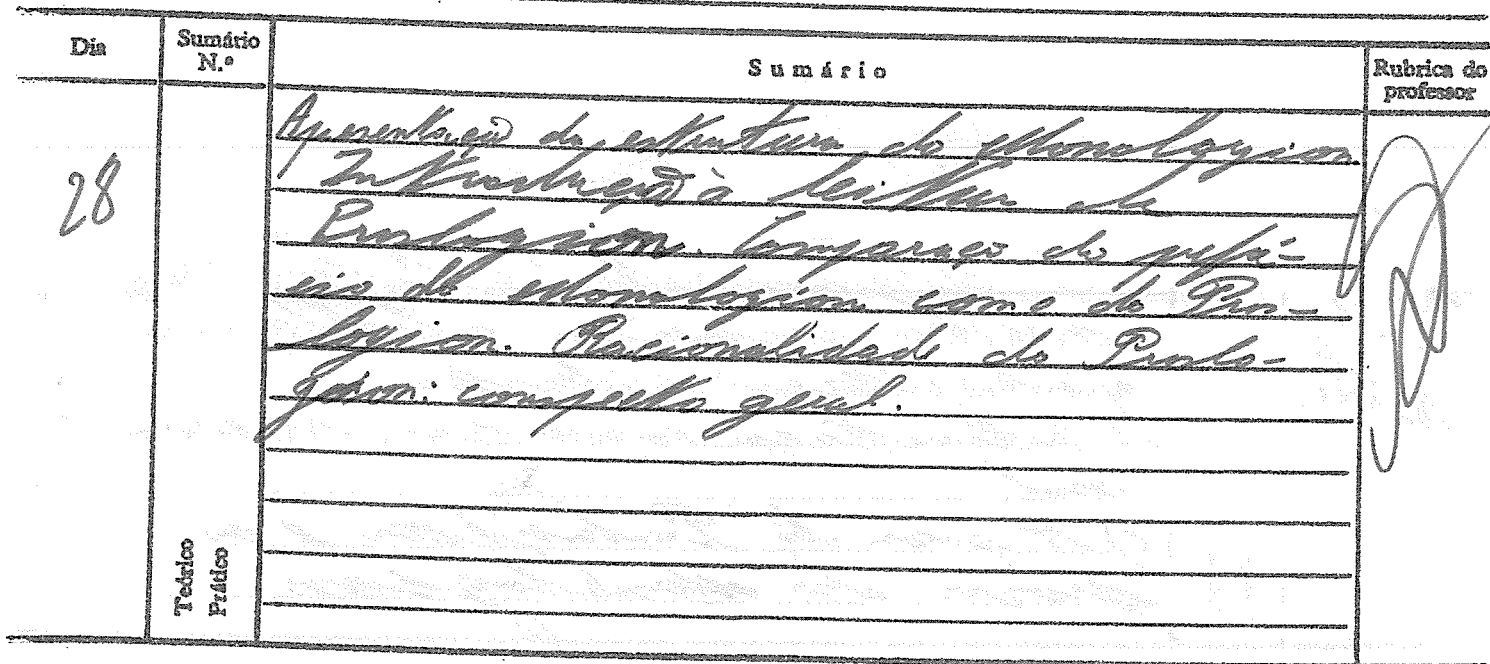 Dia
Sumário N.º
Sumário
Rubrica do professor
28
Apresentação da estrutura do Monologion
Introdução à leitura do
Proslogion. Comparação do prefá-
cio do Monologion com o do Pros-
logion. Racionalidade do Proslo-
gion: conspecto geral.
Teórico
Prático